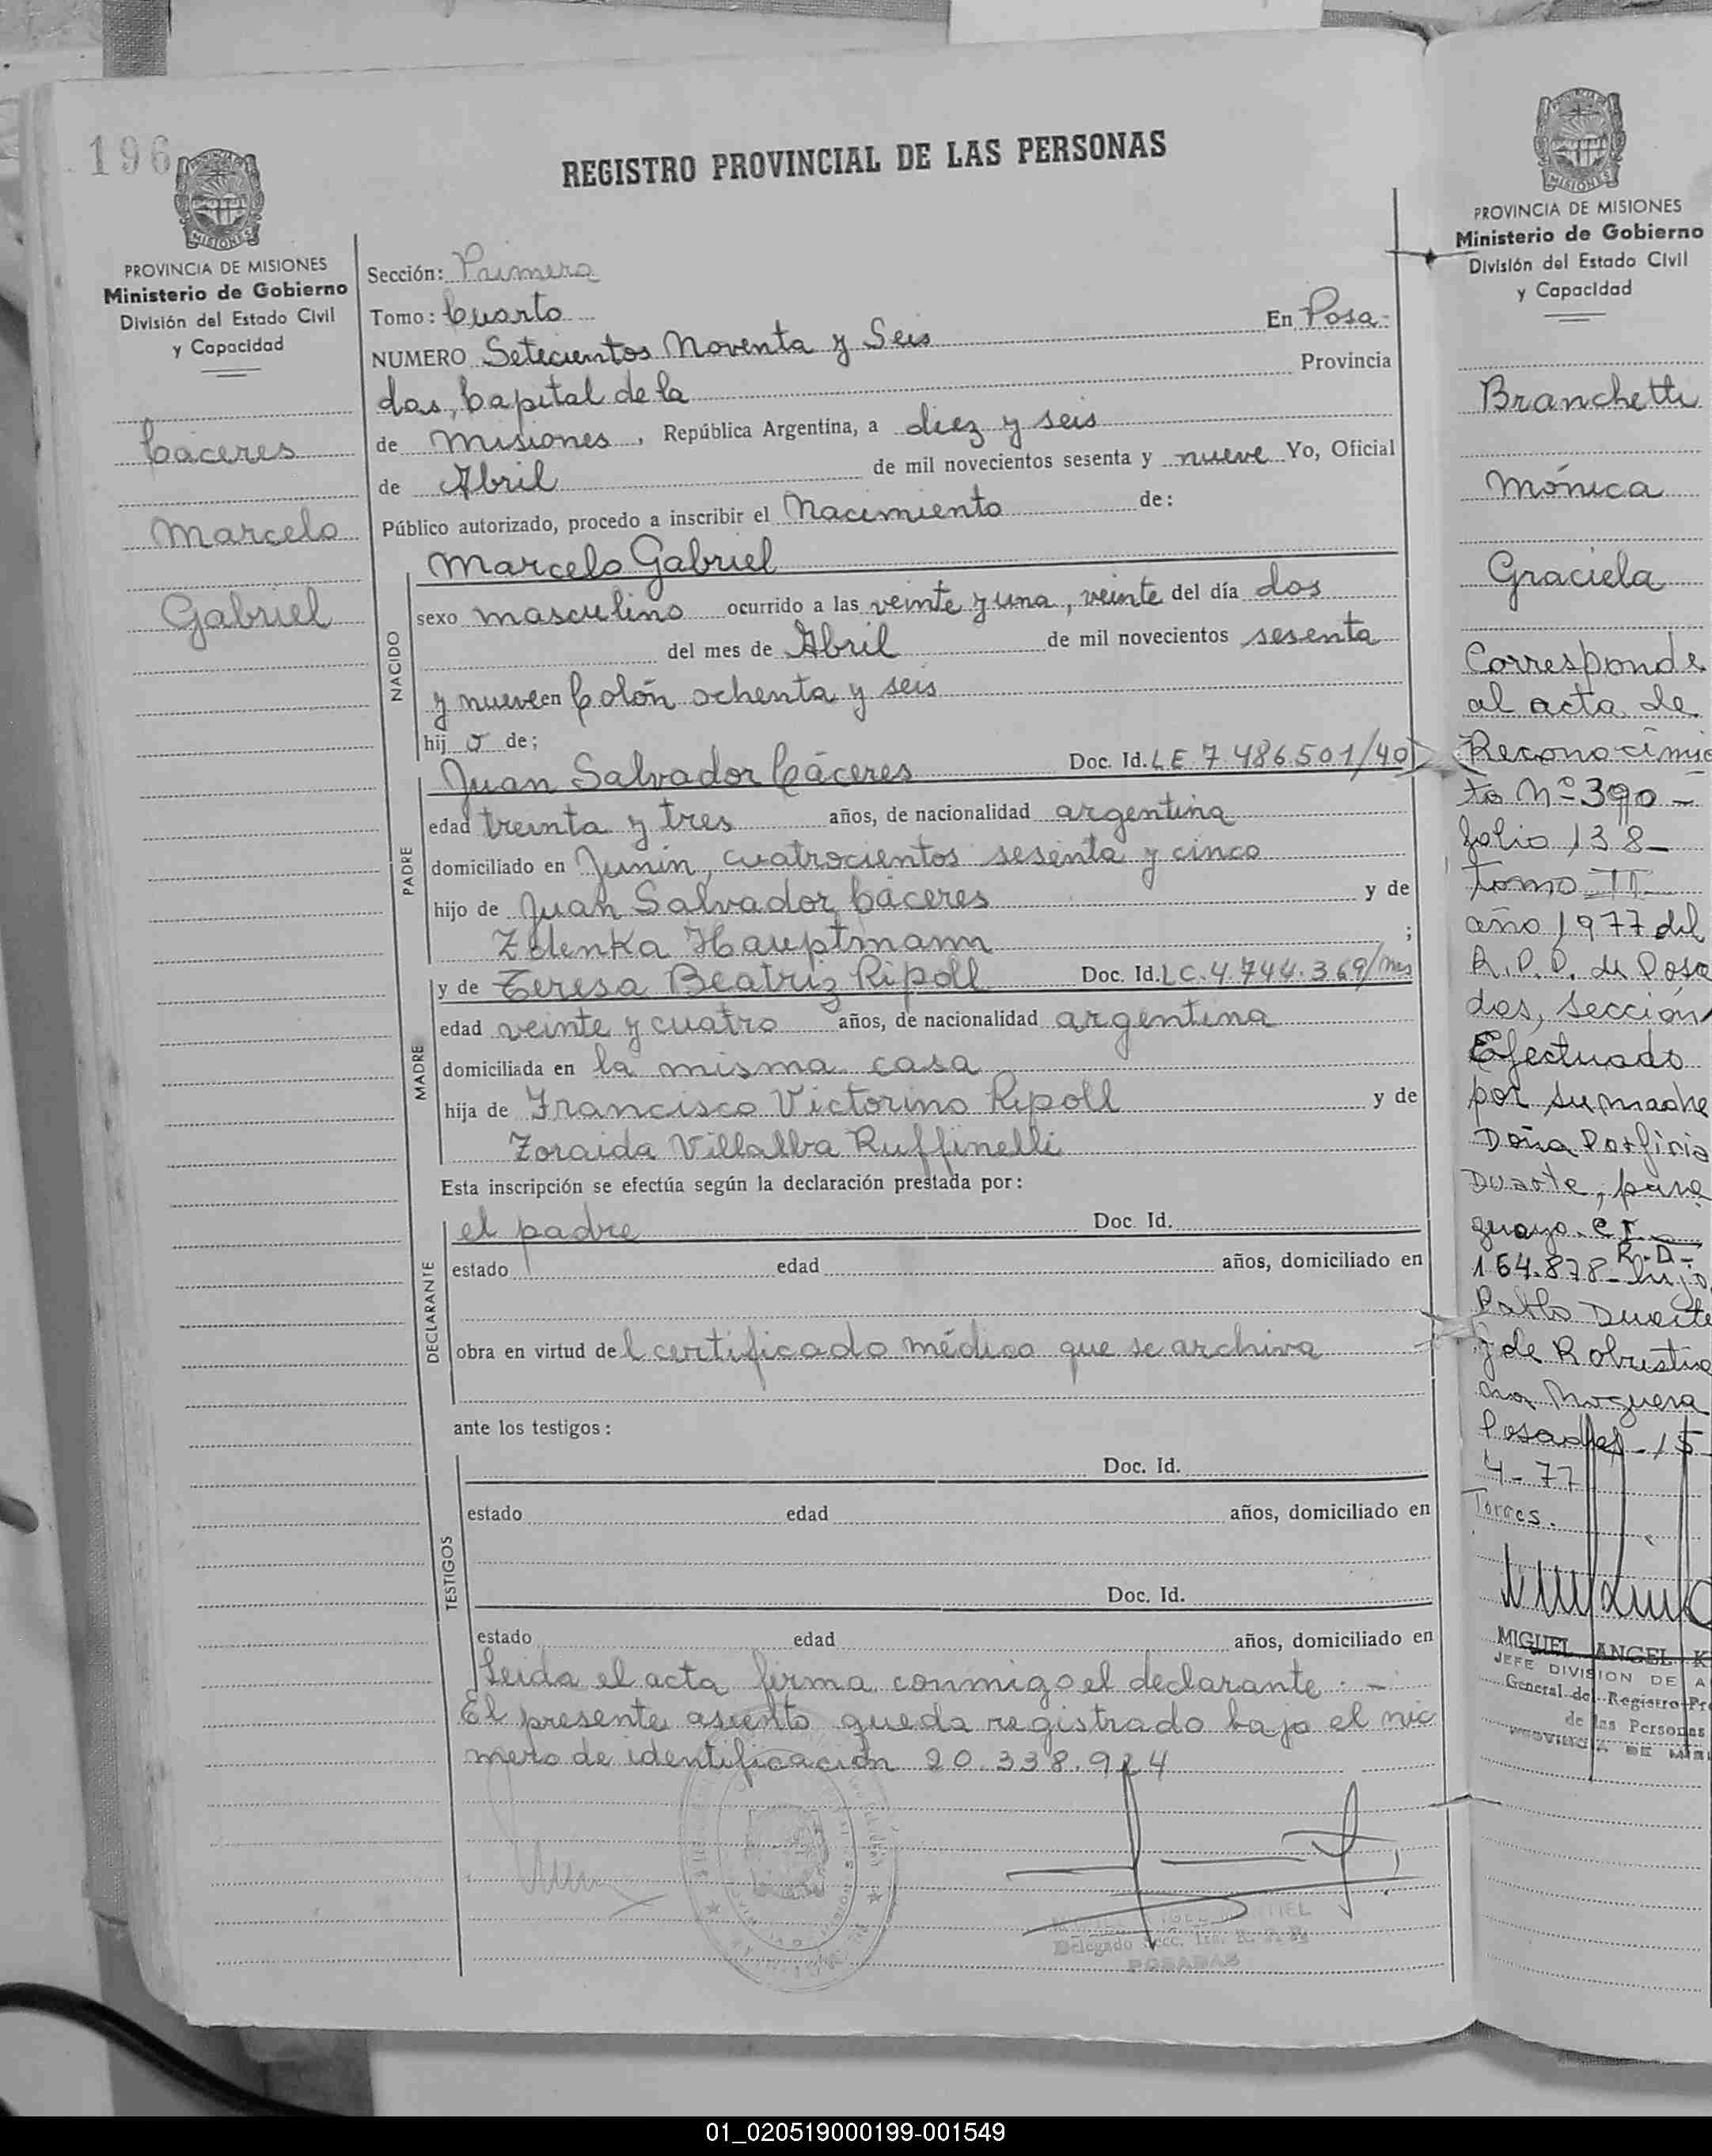 196
REGISTRO PROVINCIAL DE LAS PERSONAS
PROVINCIA DE MISIONES
Ministerio de Gobierno
División del Estado Civil
y Capacidad
Cáceres
Marcelo
Gabriel
Sección: Primera
Tomo: Cuarto
NUMERO Setecientos Noventa y Seis En Posa-
das, Capital de la Provincia
de Misiones, República Argentina, a diez y seis
de Abril de mil novecientos sesenta y nueve Yo, Oficial
Público autorizado, procedo a inscribir el Nacimiento de:
NACIDO
Marcelo Gabriel
sexo masculino ocurrido a las veinte y una, veinte del día dos
del mes de Abril de mil novecientos sesenta
y nueve en Colón ochenta y seis
hij o de;
PADRE
Juan Salvador Cáceres Doc. Id. LE 7.486.501/40
edad treinta y tres años, de nacionalidad argentina
domiciliado en Junín, cuatrocientos sesenta y cinco
hijo de Juan Salvador Cáceres y de
Zdenka Hauptmann ;
MADRE
y de Teresa Beatriz Ripoll Doc. Id. LC.4.744.369/Ms
edad veinte y cuatro años, de nacionalidad argentina
domiciliada en la misma casa
hija de Francisco Victorino Ripoll y de
Zoraida Villalba Ruffinelli
Esta inscripción se efectúa según la declaración prestada por:
DECLARANTE
el padre Doc. Id.
estado edad años, domiciliado en
obra en virtud del certificado médico que se archiva
ante los testigos:
TESTIGOS
Doc. Id.
estado edad años, domiciliado en
Doc. Id.
estado edad años, domiciliado en
Leida el acta firma conmigo el declarante.-
El presente asiento queda registrado bajo el nú
mero de identificación 20.338.924
Delegado Secc. 1ra. R. P. P.
POSADAS
PROVINCIA DE MISIONES
Ministerio de Gobierno
División del Estado Civil
y Capacidad
Branchetti
Mónica
Graciela
Corresponde
al acta de
Reconocimie
to Nº 390 -
folio 138-
tomo II
año 1977 del
R.P.P. de Posa
das, sección
Efectuado
por su madre
Doña Porfiria
Duarte, para
guaya. C.I.
R.D-
154.878- hija
Pablo Duarte
y de Robustia
na Noguera
Posadas - 15-
4-77
Torres.
MIGUEL ANGEL K
JEFE DIVISION DE A
General del Registro Pro
de las Personas
PROVINCIA DE MIS
01_020519000199-001549